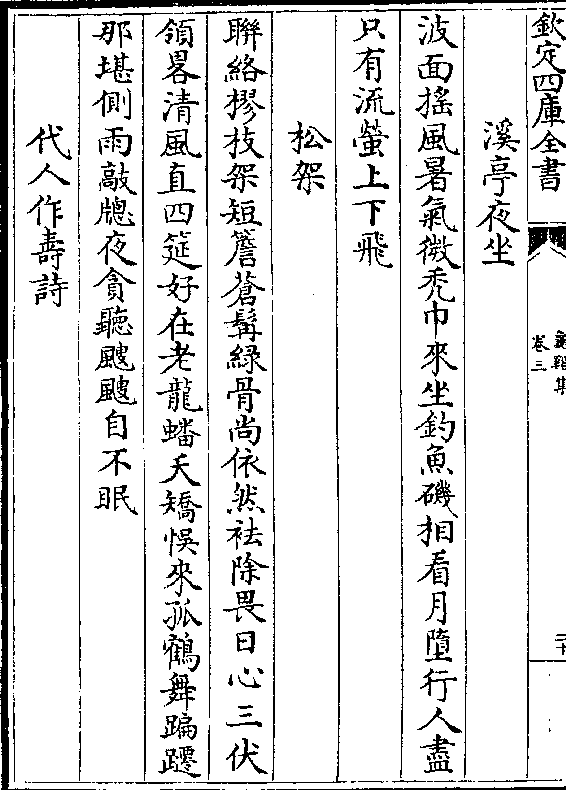 欽定四庫全書
卷三
溪亭夜坐
波面摇風暑氣微秃巾來坐釣魚磯相看月墮行人盡
只有流螢上下飛
松架
聯絡樛枝架短簷蒼髯緑骨尚依然祛除畏日心三伏
領畧清風直四筵好在老龍蟠夭矯悞來孤鶴舞蹁躚
那堪側雨敲牕夜貪聽颼颼自不眠
代人作壽詩